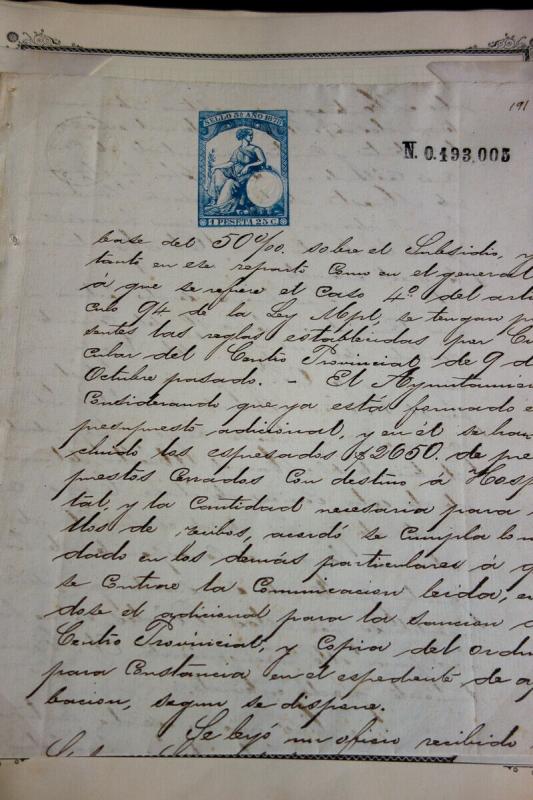 191
SELLO 5º AÑO 1875
N. 0.493,005
1 PESETA 25 C.
base del 50 %. sobre el Subsidio, y
tanto en ese reparto como en el general
á que se refiere el Caso 4º del artí
culo 94 de la Ley Mpl, se tengan pre
sentes las reglas establecidas por Cir
cular del Centro Provincial de 9 de
Octubre pasado. - El Ayuntamien
Considerando que ya está formado e
presupuesto adicional, y en él se han
cluido los espresados $2650. de pre
puestos Cerrados Con destino á Hosp
tal, y la Cantidad necesaria para
llos de recibos, acordó se Cumpla lo
dado en los demás particulares á q
se Contrae la Comunicacion leida, e
dose el adicional para la sancion
Centro Provincial, y Copia del
para Constancia en el espediente de a
bacion, segun se dispone.
Se leyó un oficio recibido